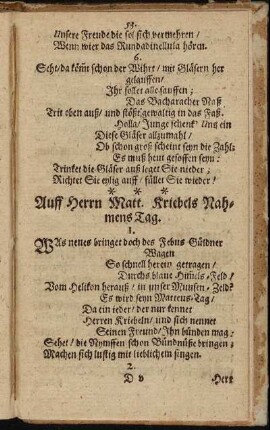 53.
Unsere Freude die sol sich vermehren /
Wenn wier das Rundadinellula hören.
6.
Seht / da kömt schon der Wihrt / mit Gläsern her
gelauffen /
Ihr sollet alle sauffen ;
Das Bacharacher Naß
Trit eben auß / und stößt gewaltig in das Faß.
Holla / Junge schenk' Uns ein
Diese Gläser allzumahl /
Ob schon groß scheint seyn die Zahl:
Es muß heut gesoffen seyn:
Trinket die Gläser auß leget Sie nieder ;
Richtet Sie eylig auff / füllet Sie wieder /
* * *
Auff Herrn Matt. Kriebels Nah-
mens Tag.
1.
WAs neues bringet doch des Febus Güldner
Wagen
So schnell herein getragen /
Durchs blaue Himels-Feld /
Vom Helikon herauß / in unser Muusen-Zeld?
Es wird seyn Matteus-Tag /
Da ein ieder / der nur kennet
Herren Kriebeln / und sich nennet
Seinen Freund / Ihn bünden mag:
Sehet / die Nymffen schon Bündnüsse bringen ;
Machen sich lustig mit lieblichem singen.
2.
D v Herr